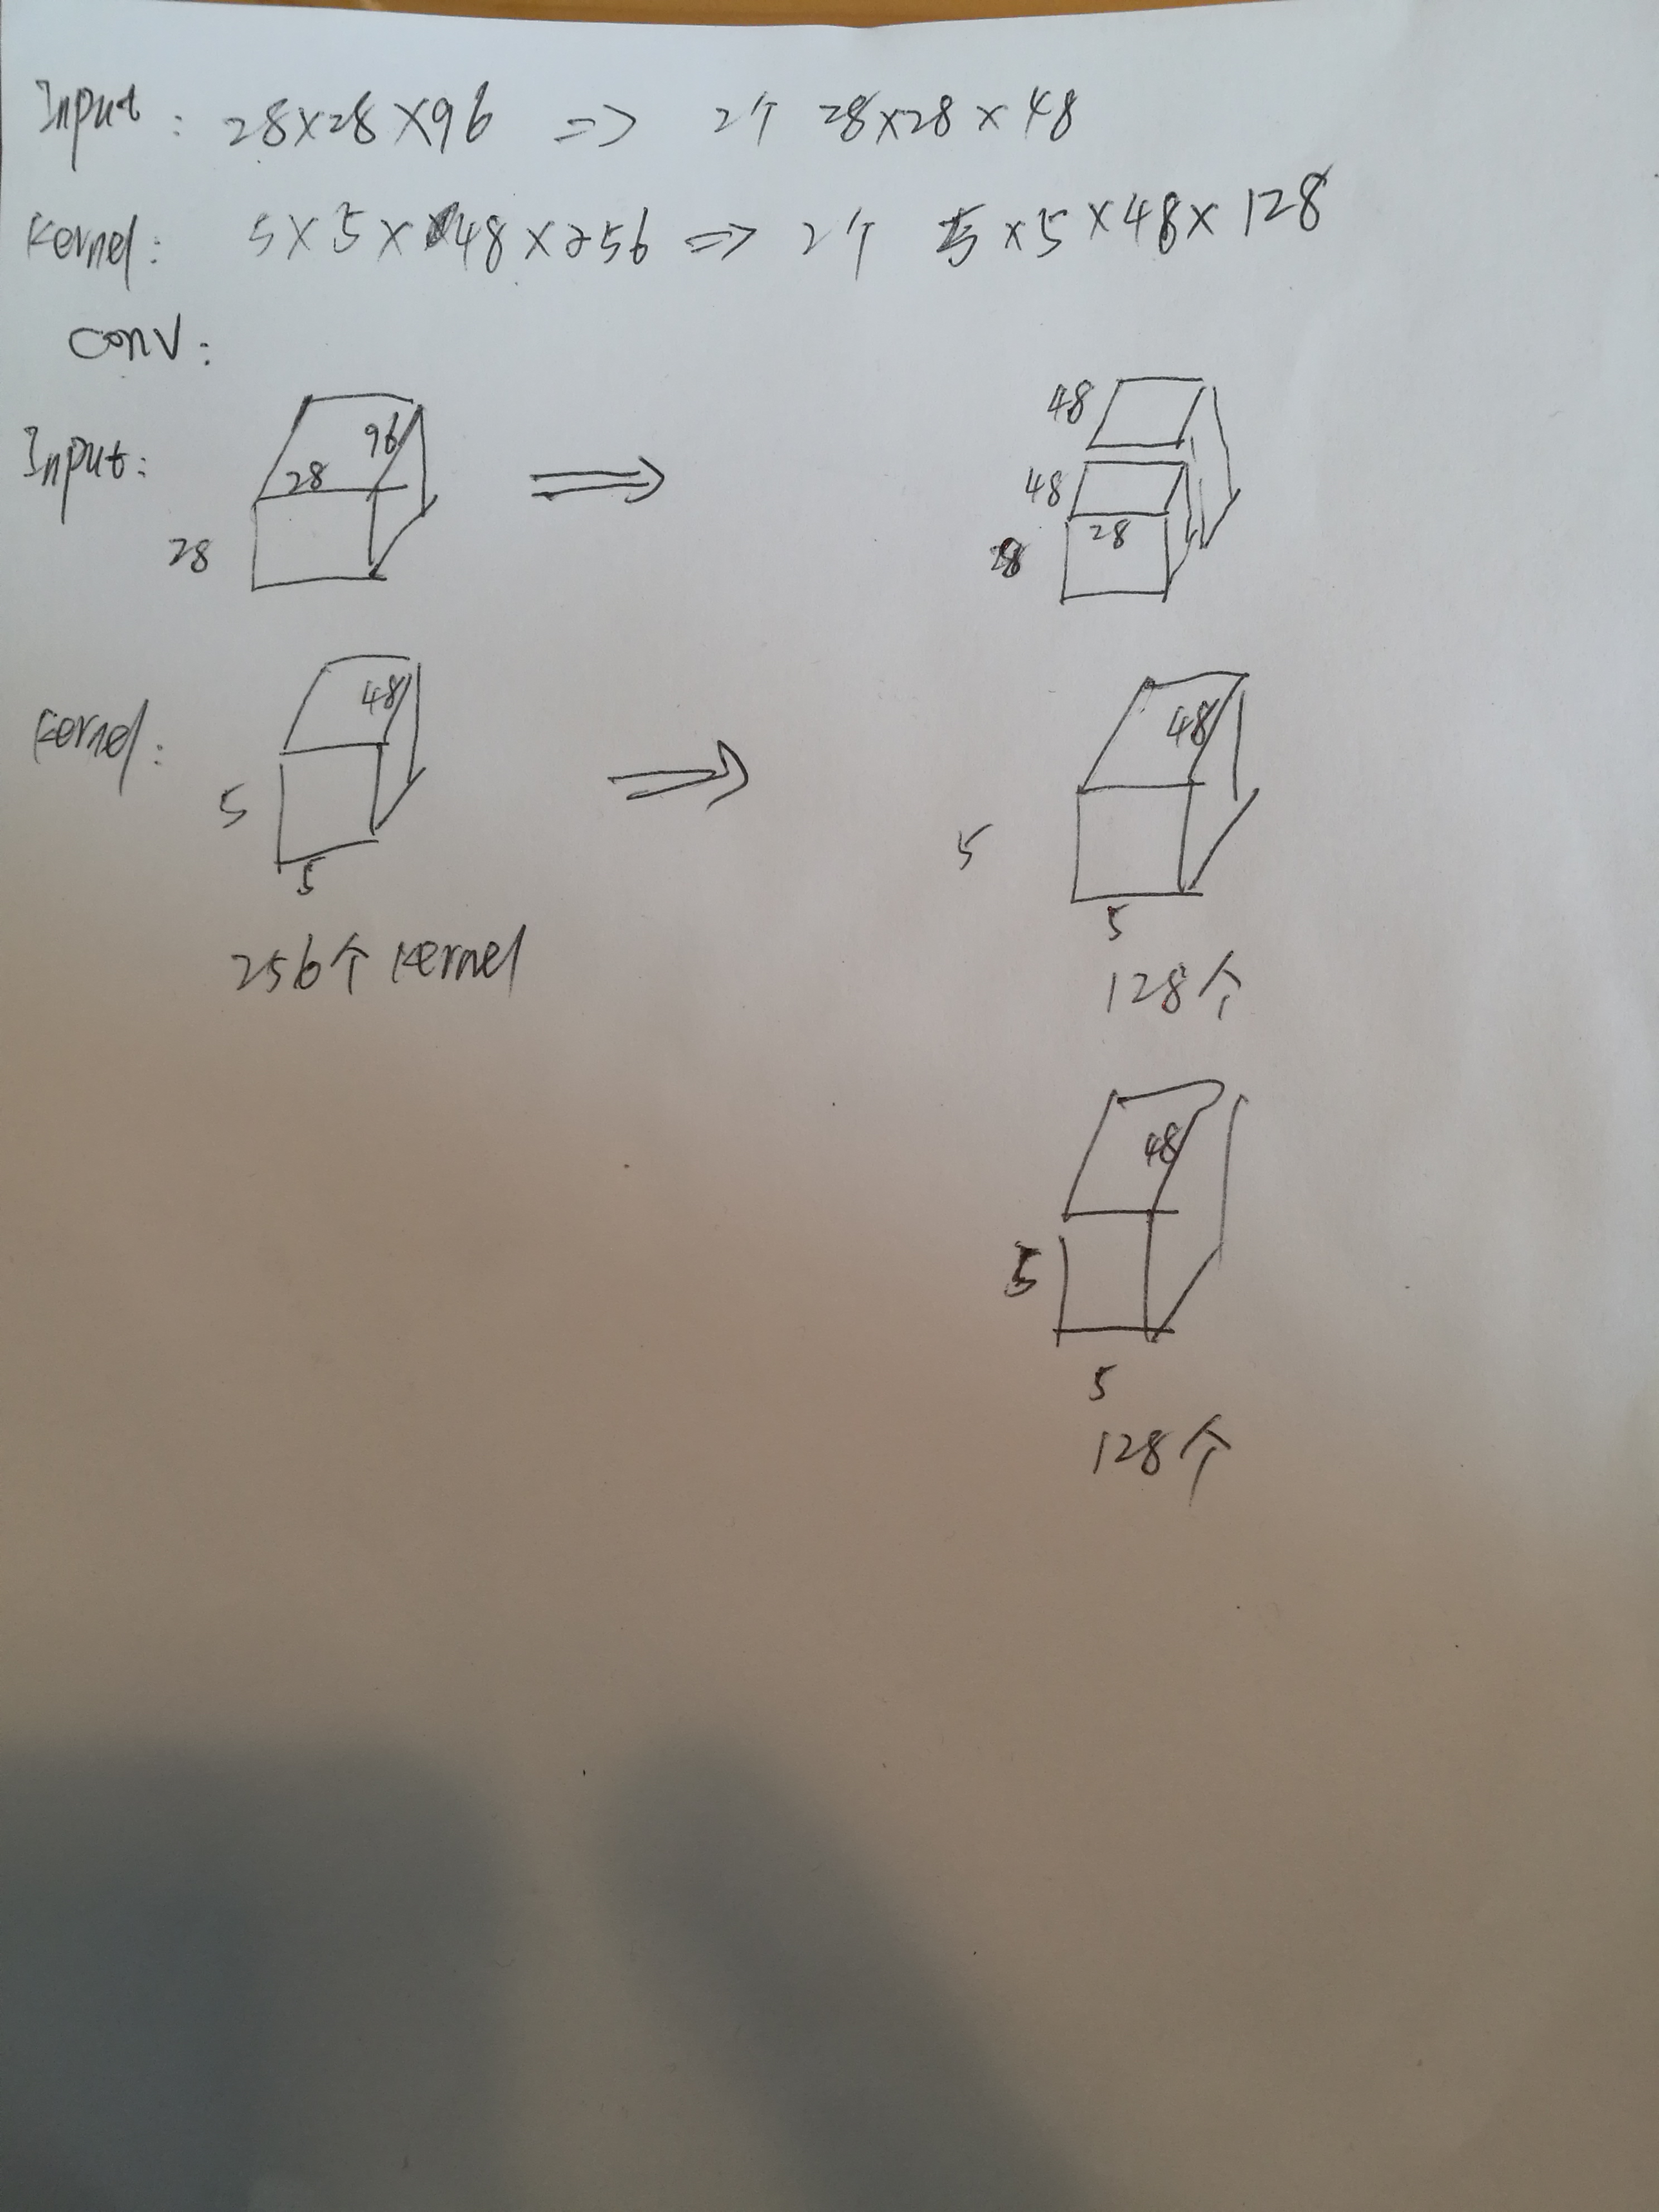 Input: 28×28×96 => 2个 28×28×48
Kernel: 5×5×48×256 => 2个 5×5×48×128
conv:
Input:
96
28
28
48
48
28
28
Kernel:
48
5
5
256个 Kernel
48
5
5
128个
48
5
5
128个